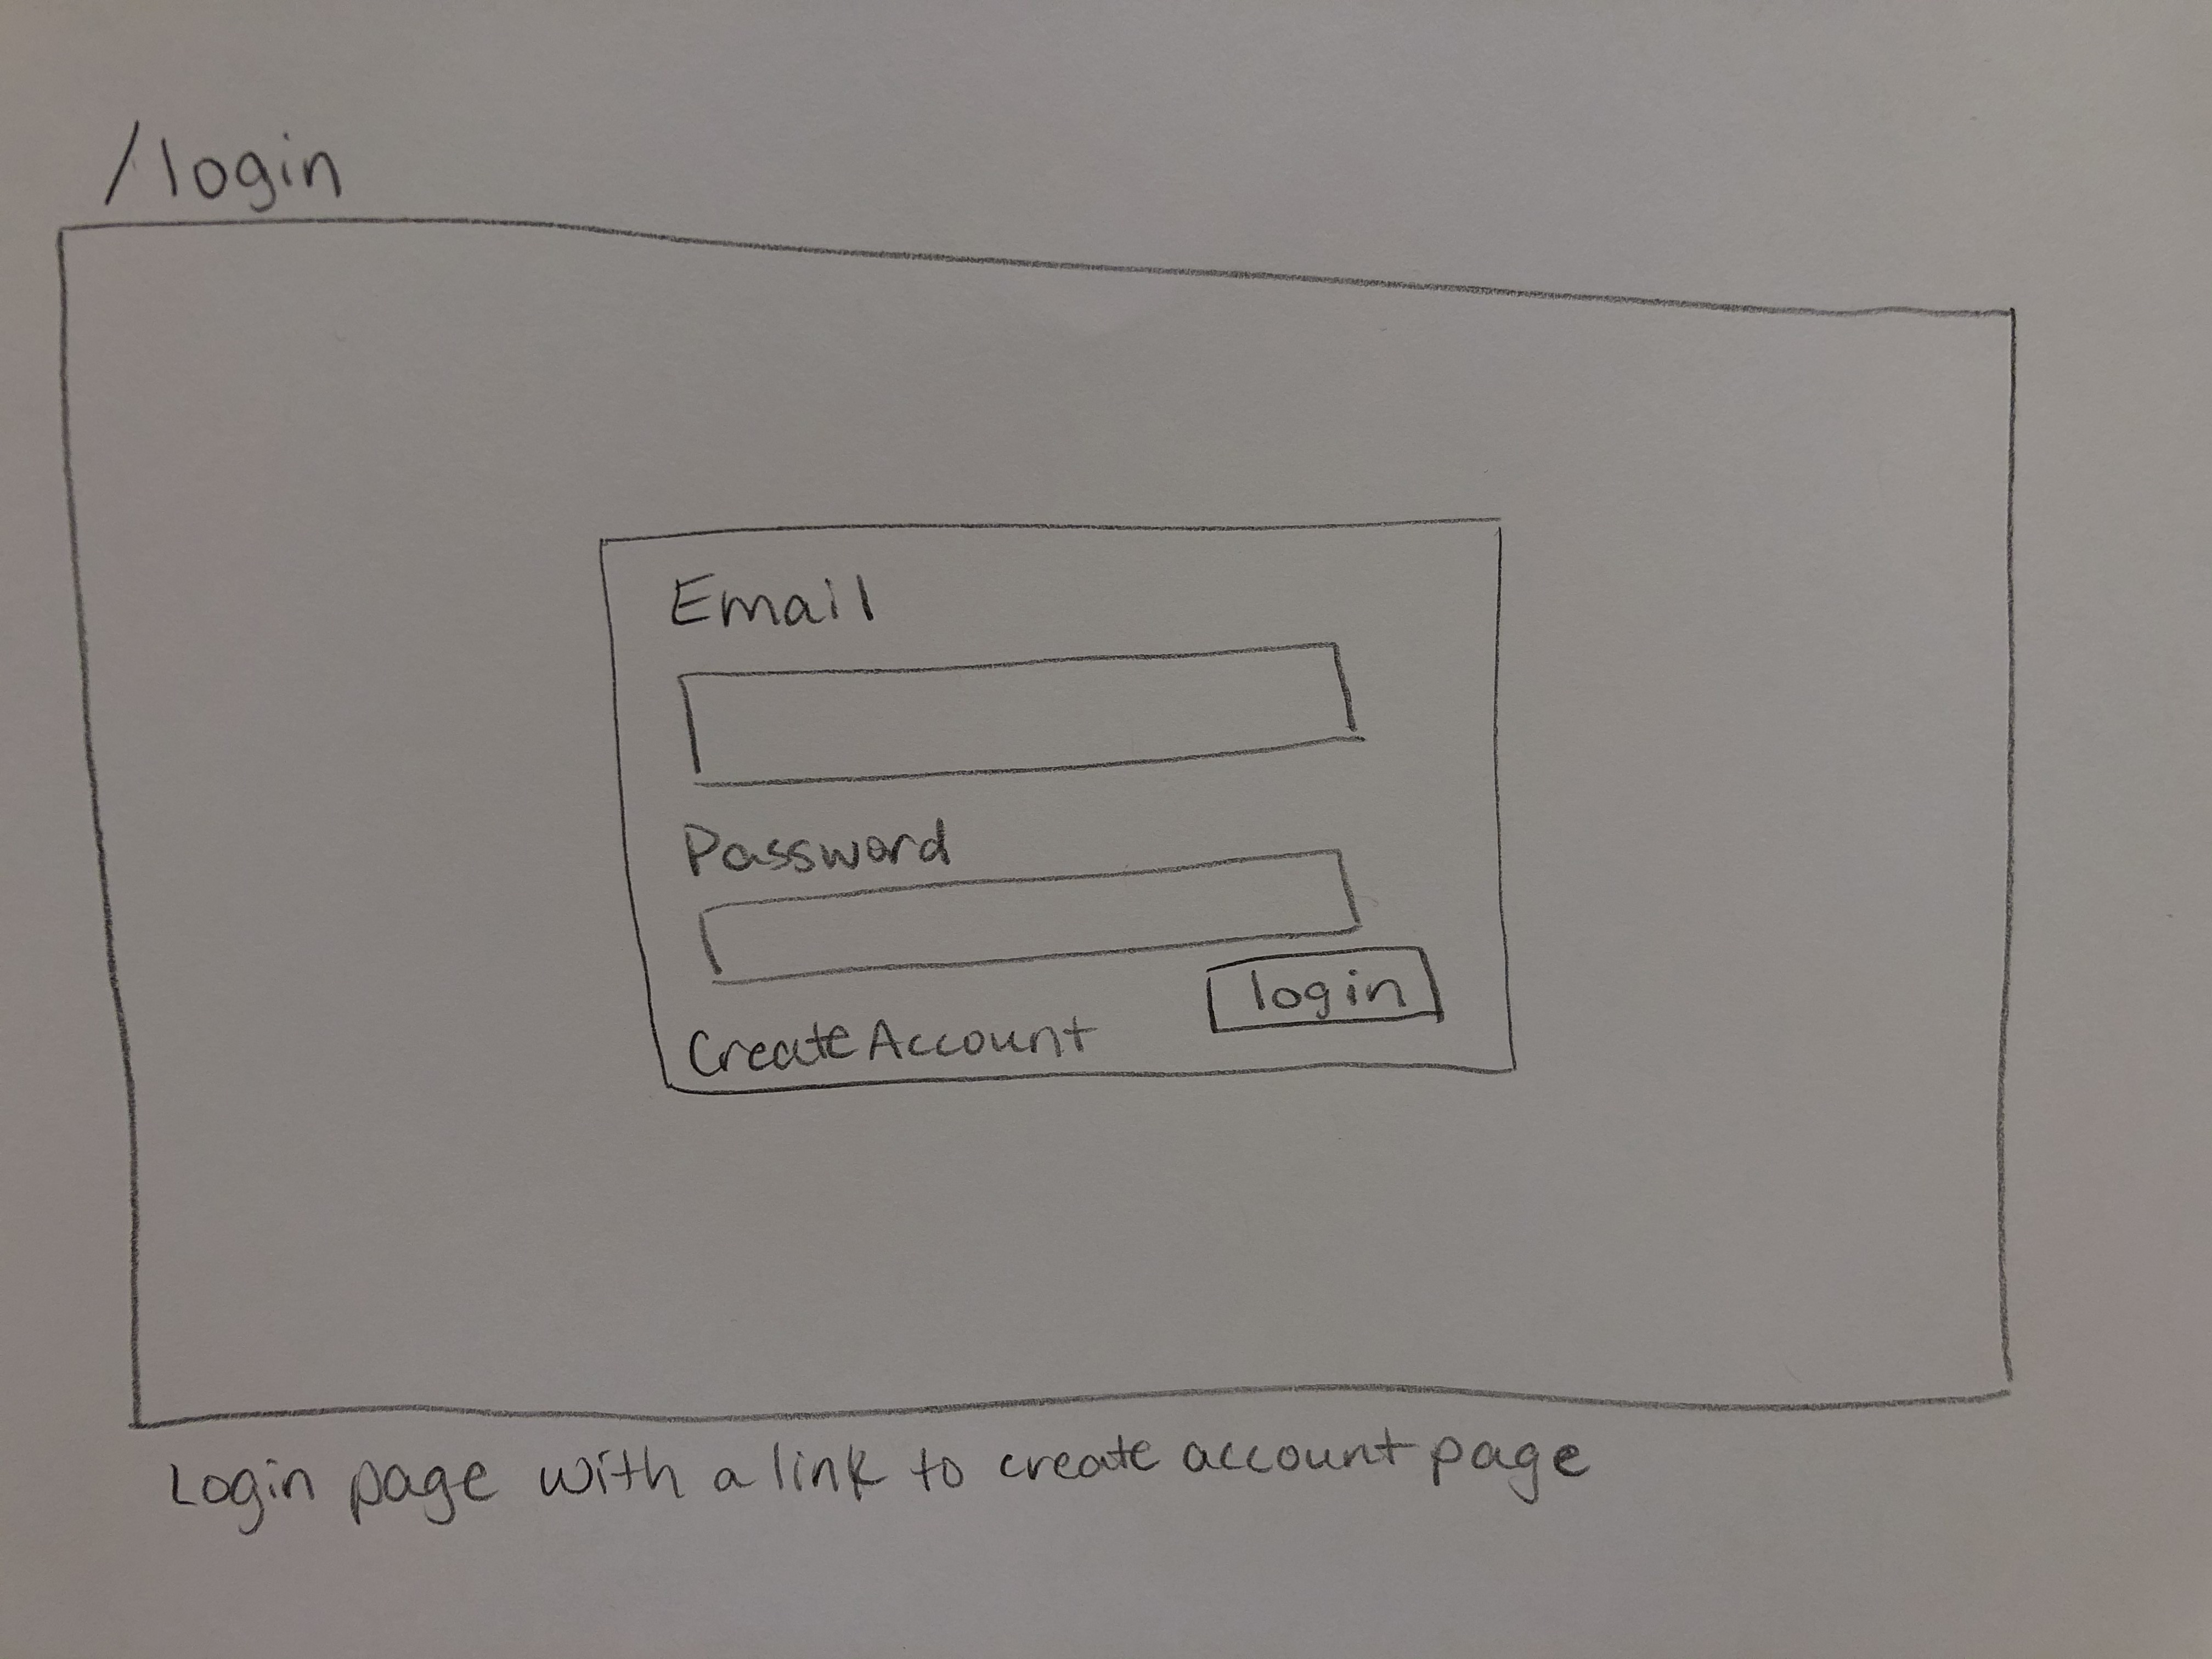 /login
Email
Password
login
Create Account
Login page with a link to create account page